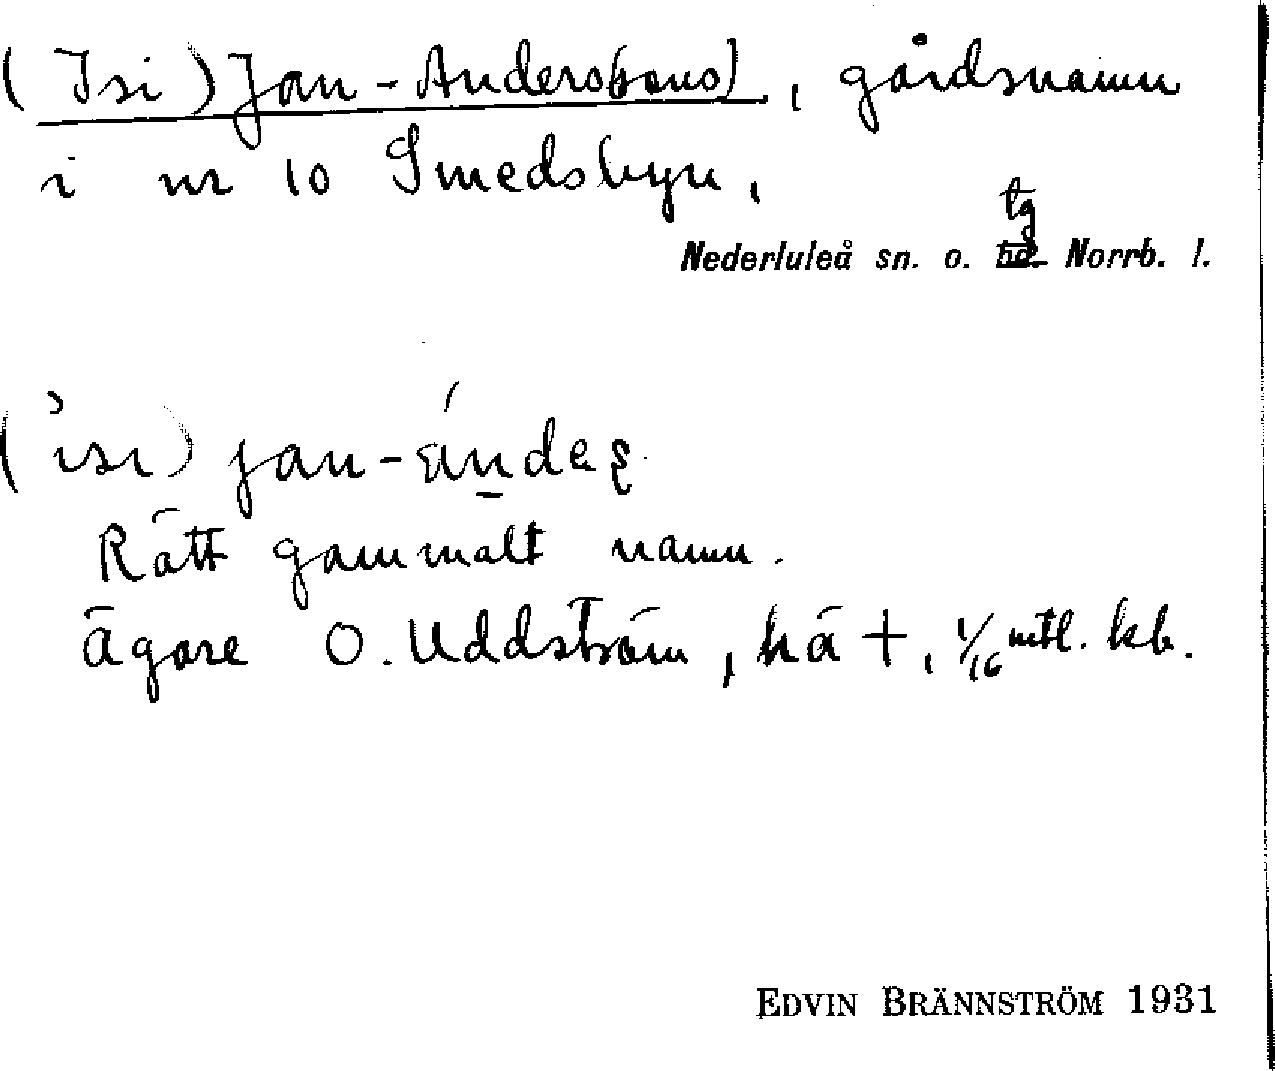 (Isi) Jan-Anders(sons), gårdsnamn
i nr 10 Smedsbyn,
tg
Nederluleå sn. o. hd. Norrb. l.
(ísi) jan-ándeʂ
Rätt gammalt namn.
Ägare O. Uddström, hä +, 1/16 mtl. kb.
EDVIN BRÄNNSTRÖM 1931